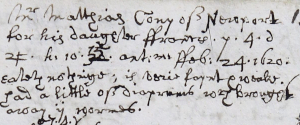 Mr. Matthias Cony of Newport
for his daughter ffrances. y. 4. d
24. h. 10. ant. m. ffeb. 24. 1620.
eateth nothinge, is verie faynt & weake.
had a little of diaprunis wch brought
away ij wormes.